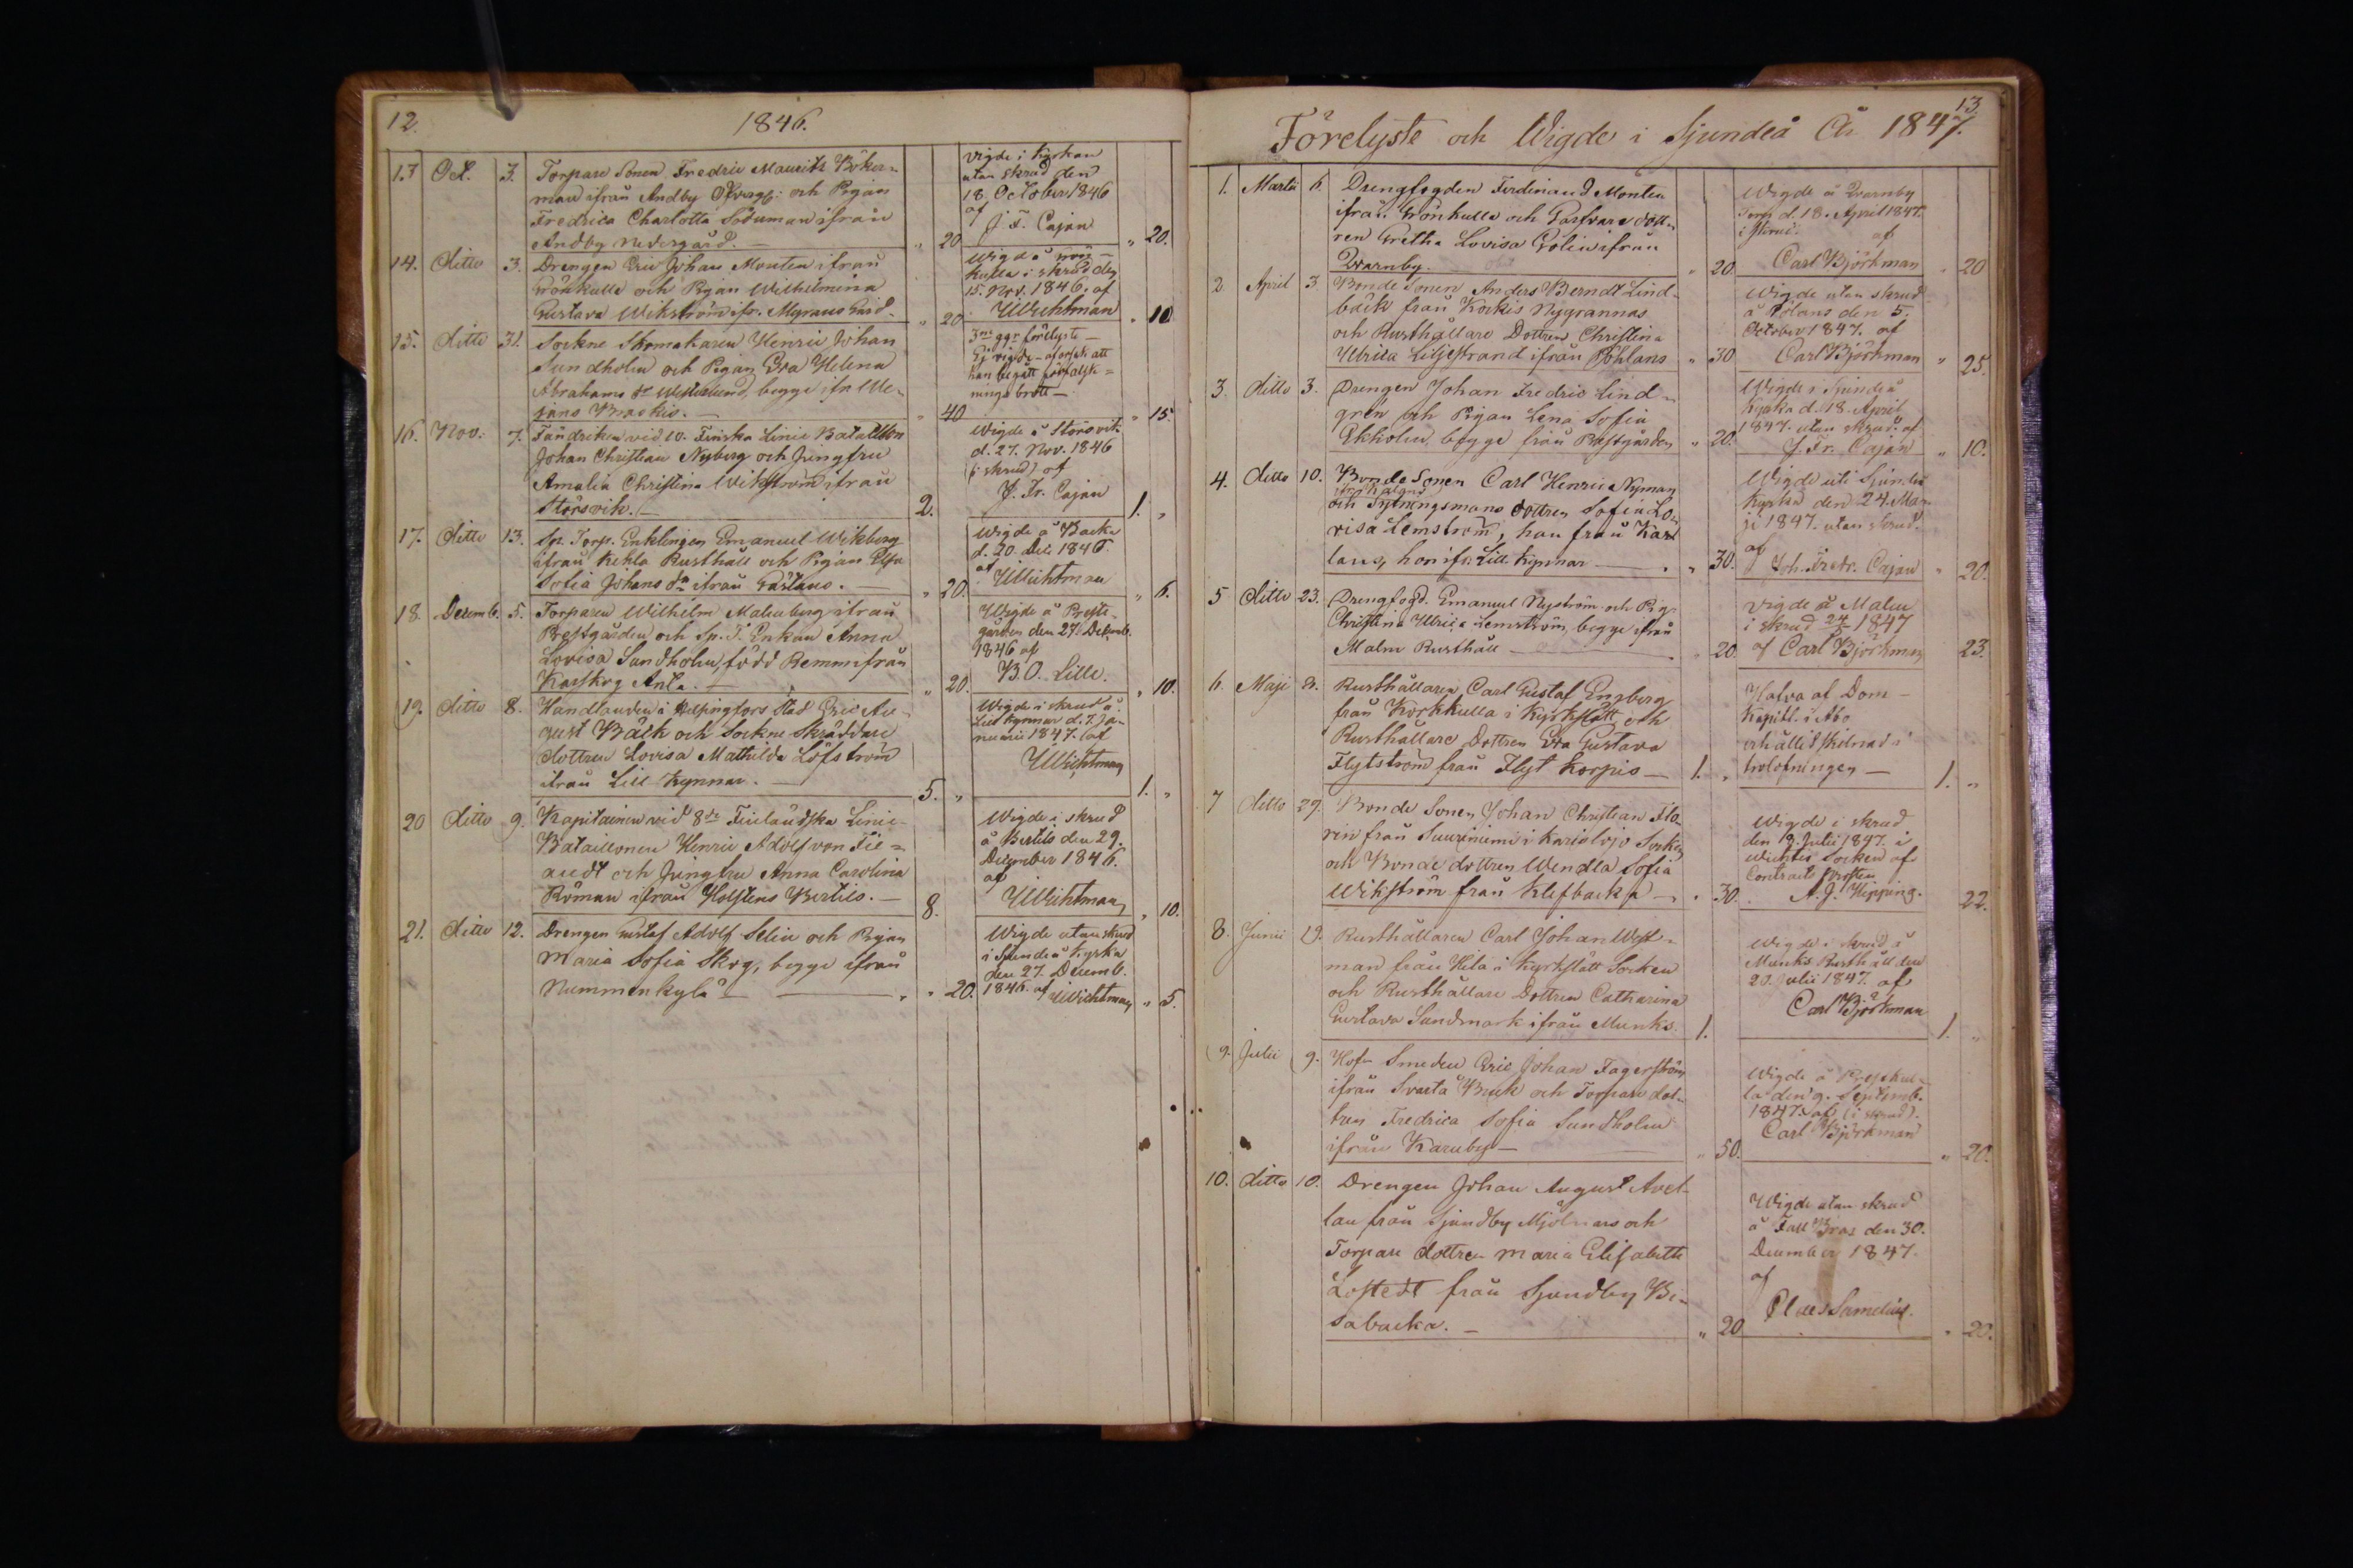 12.
1846.
13. Oct. 3. Torpare Sonen Fredric Maurits Böker-
man ifrån Andby Öfvergg: och Pigan
Fredrica Charlotta Söderman ifrån
Andby Nedergård. — " 20
vigde i Kyrkan
utan skrud den
18 October 1846
af
J. F. Cajan " 20.
14. ditto 3. Drengen Eric Johan Monten ifrån
Grönkulla och Pigan Wilhelmina
Gustava Wikström ifr. Myrans Gård. " 20
Wigde å Grön-
kulla i skrud den
15. Nov. 1846. af
UWichtman " 10
15. ditto 31. Sockne Skomakaren Henric Johan
Sundholm och Pigan Eva Helena
Abrahams dr Westerlund, begge ifr. We-
jans Backis. — " 40
3ne ggr förelyste —
Ej vigde - aforsak att
han begått förfalsk-
nings brott — " 15.
16. Nov. 7. Fändriken vid 10. Finska Linie Bataillon
Johan Christian Nyberg och Jungfru
Amalia Christina Wikström ifrån
Störsvik. — 2.
Wigde å Störsvik
d. 27. Nov. 1846
(i skrud) af
J. Fr. Cajan 1. "
17. ditto 13. Sp. Torp. Enklingen Emanuel Wikberg
ifrån Kekla Rusthåll och Pigan Elsa
Sofia Johans dr ifrån Gårdans. — " 20.
Wigde å Backa
d. 20. Dec. 1846.
af
UWichtman " 6.
18. Decemb. 5. Torparen Wilhelm Malmberg ifrån
Prestgården och Sp. T. Enkan Anna
Lovisa Sundholm, född Remm ifrån
Karskog Anta. — " 20.
Wigde å Prest-
gården den 27. Decemb.
1846 af
B. O. Lille. " 10.
19. ditto 8. Handlanden i Helsingfors Stad Eric Au-
gust Bäck och Sockne Skräddare
dottren Lovisa Mathilda Löfström
ifrån Lill Kynnar. — 5. "
Wigde i skrud å
Lill Kynnar d. 7. Ja-
nuarii 1847. af
UWichtman 1. "
20 ditto 9. Kapitainen vid 8de Finländska Linie-
Bataillonen Henric Adolf von Fie-
andt och Jungfru Anna Carolina
Roman ifrån Holstens Bertils. — 8.
Wigde i skrud
å Bertils den 29.
December 1846.
af
UWichtman " 10.
21. ditto 12. Drengen Gustaf Adolf Selin och Pigan
Maria Sofia Skog, begge ifrån
Nummenkylä — " 20.
Wigde utan skrud
i Sjundeå Kyrka
den 27. Decemb.
1846. af UWichtman " 5.
13
Förelyste och Wigde i Sjundeå År 1847.
1. Martii 6. Drengfogden Ferdinand Monten
ifrån Grönkulla och Garfvare dott-
ren Gretha Lovisa Golin ifrån
Qvarnby. " 20.
Wigde å Qvarnby
Torp d. 18. April 1847.
i skrud. af
Carl Björkman " 20
2 April 3 Bonde Sonen Anders Berndt Lind-
bäck från Kockis Nygrannas
och Rusthållare Dottren Christina
Ulrica Liljestrand ifrån Pöhlans " 30
Wigde utan skrud
å Pölans den 5.
October 1847. af
Carl Björkman " 25.
3. ditto 3. Drengen Johan Fredric Lind-
gren och Pigan Lena Sofia
Ekholm, begge från Prestgården " 20.
Wigde i Sjundeå
Kyrka d. 18. April
1847. utan skrud. af
J. Fr. Cajan " 10.
4. ditto 10. Bonde Sonen Carl Henric Nyman
och Fjerdingsmans dottren Sofia Lo-
visa Lemström, han från Kart
lans, hon ifr. Lill Kynnar — " 30.
Wigde uti Sjundeå
Kyrka den 24. Ma-
ji 1847. utan skrud.
af
Joh. Fredr. Cajan " 20.
5 ditto 23. Drengfogd. Emanuel Nyström och Pig.
Christina Ulrica Lemström, begge ifrån
Malm Rusthåll — " 20.
vigde å Malm
i skrud 1847
af Carl Björkman 23.
6. Maji 8. Rusthållaren Carl Gustaf Engberg
från Korkkulla i Kyrkslätt, och
Rusthållare Dottren Eva Gustava
Flytström från Flyt Korpis — 1. "
Hafva af Dom-
Kapitl. i Åbo
erhållit skilnad i
trolofningen — 1. "
7 ditto 29. Bonde Sonen Johan Christian Flo-
rin från Suurniemi i Karislojo Socken
och Bonde dottren Wendla Sofia
Wikström från Klefbacka — " 30.
Wigde i skrud
den 18. Julii 1847. i
Wichtis Socken af
Contracts Prosten
A. J. Hipping. 22.
8. Junii 19. Rusthållaren Carl Johan West-
man från Hila i Kyrkslätt Socken
och Rusthållare Dottren Catharina
Gustava Sandmark ifrån Munks. 1.
Wigde i skrud å
Munks Rusthåll den
20. Julii 1847. af
Carl Björkman 1. "
9. Julii 9. Hof-Smeden Eric Johan Fagerström
ifrån Svartå Bruk och Torpare dot-
tren Fredrica Sofia Sundholm
ifrån Karuby — " 50.
Wigde å
la den 9. Septemb.
1847. af (i skrud).
Carl Björkman " 20.
10. ditto 10. Drengen Johan August Avel-
lan från Sjundby Mjölnars och
Torpare dottren Maria Elisabeth
Lostedt från Sjundby Be-
sabacka. — " 20
Wigde utan skrud
å Fall den 30.
December 1847.
af
Claes Samelius. " 20.